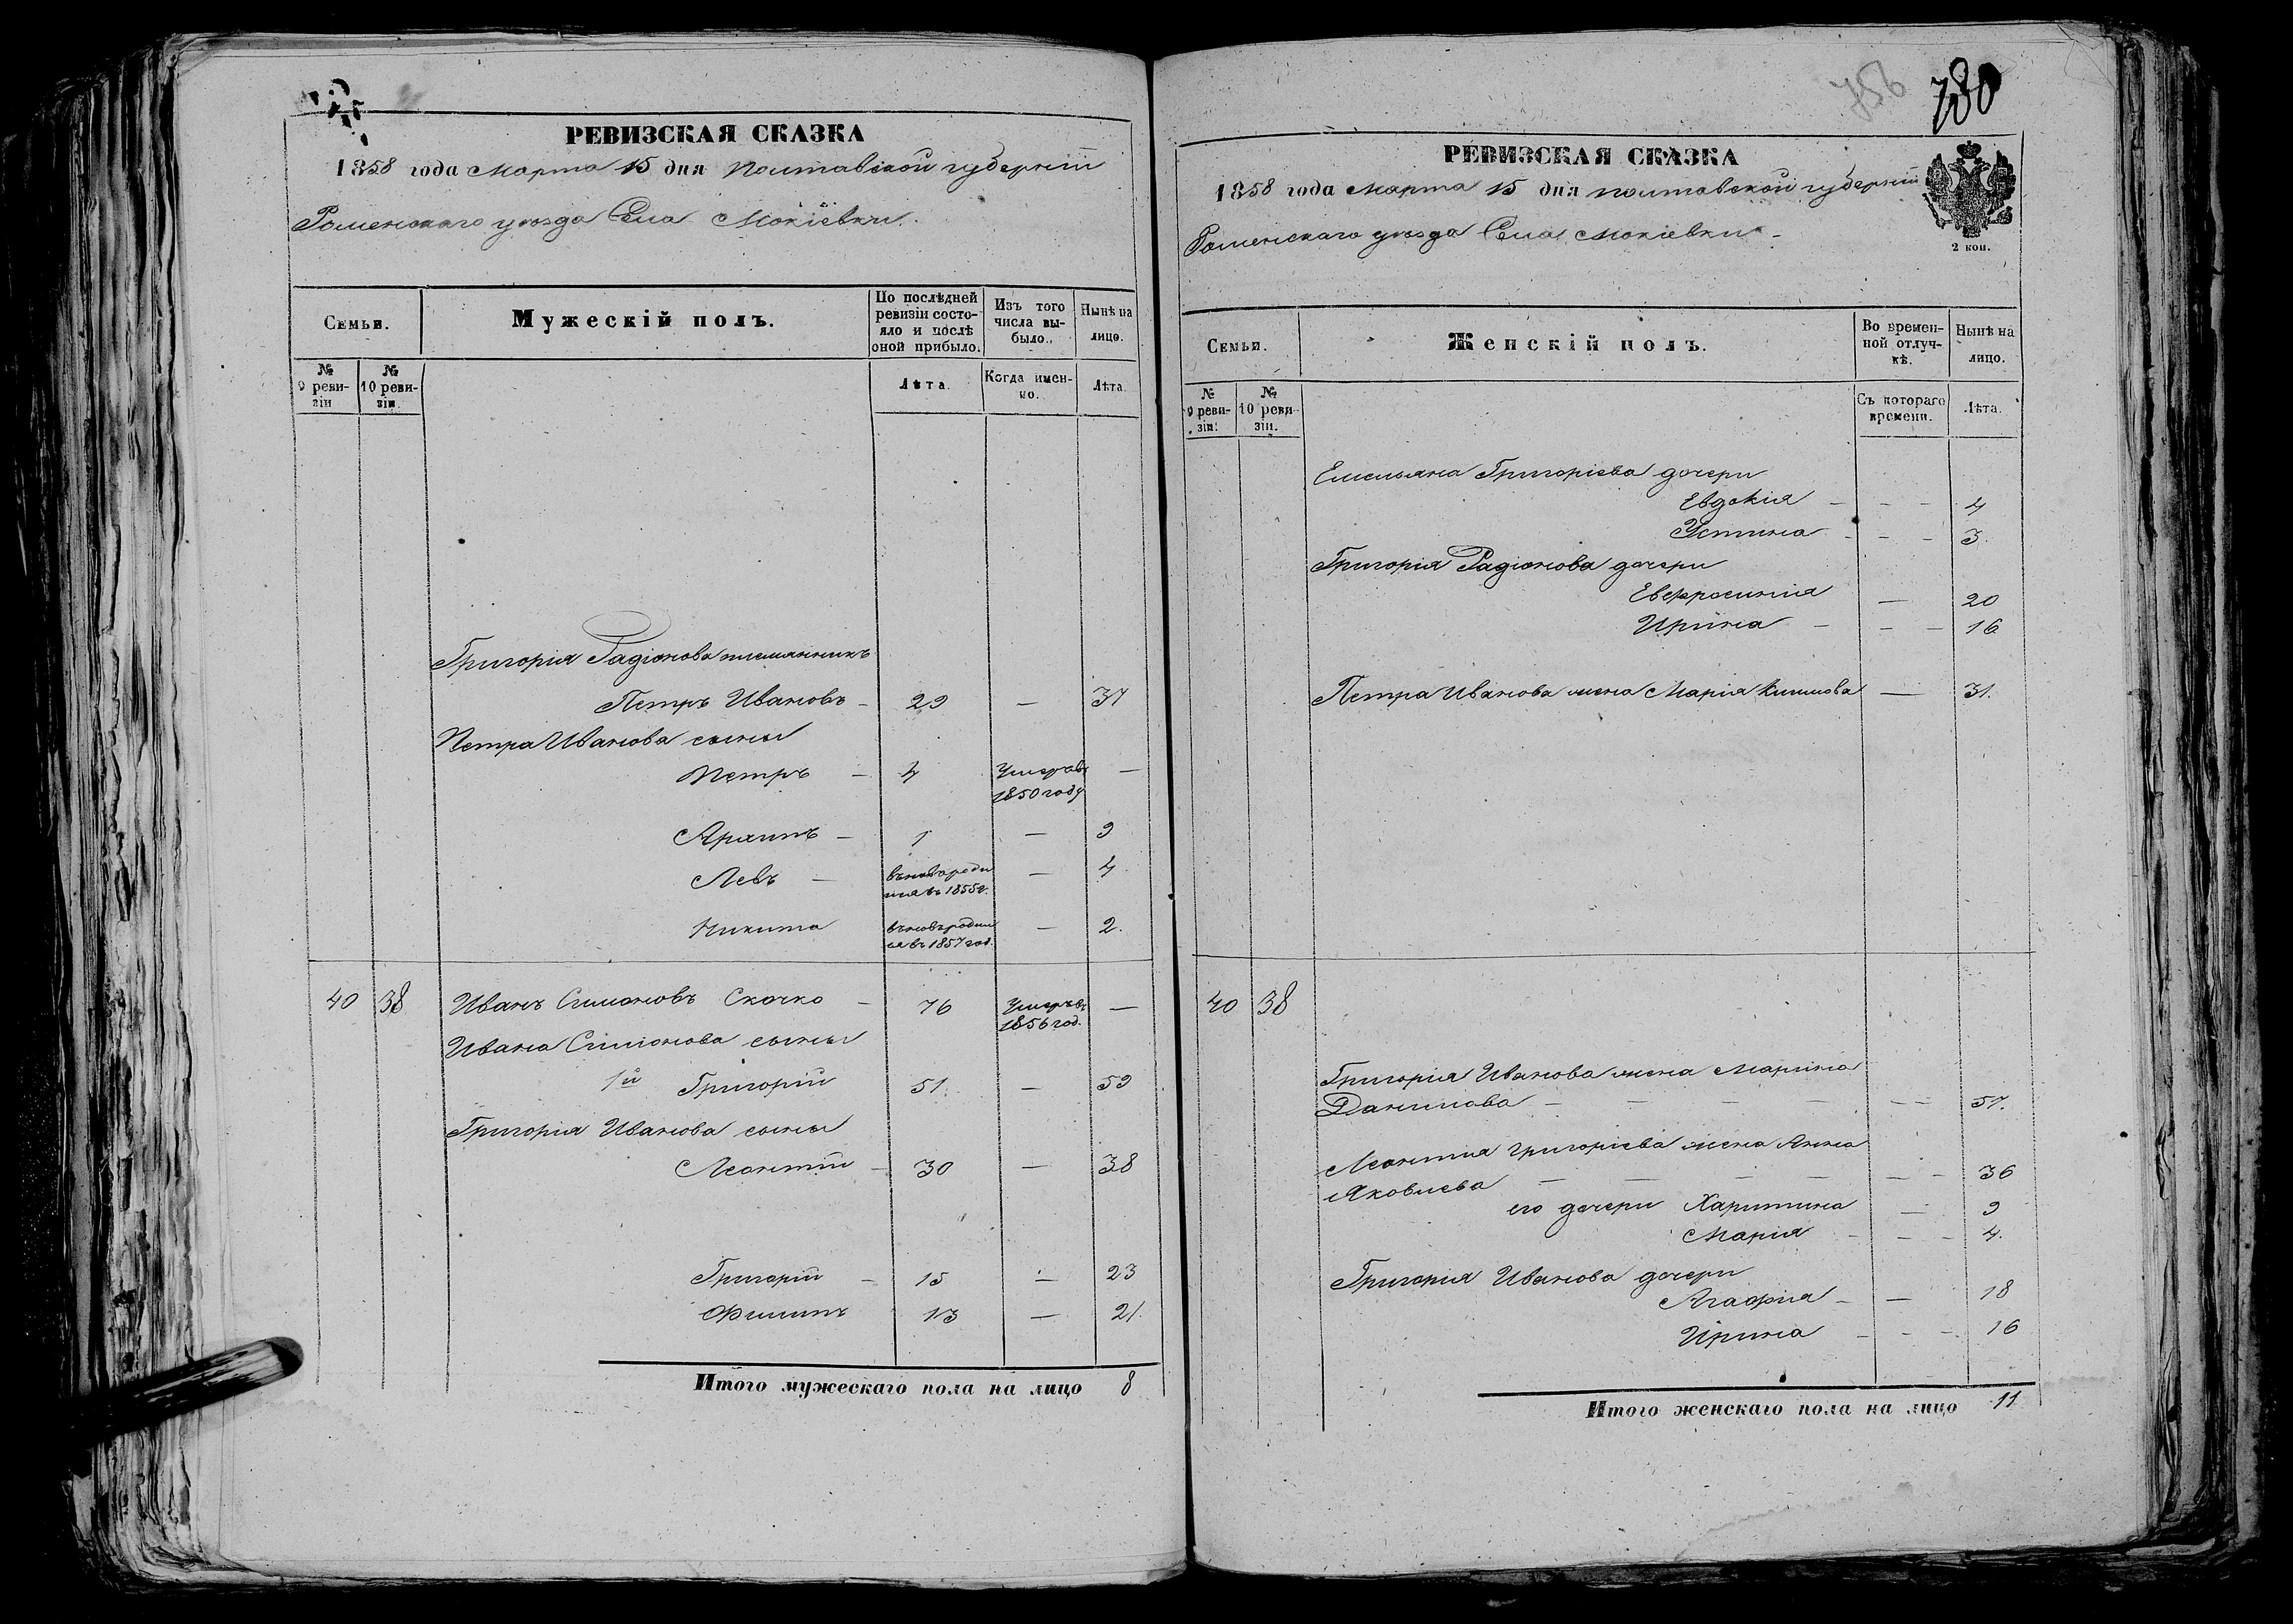 РЕВИЗСКАЯ СКАЗКА
1858 года Марта 15 дня Полтавской губернии
Роменскаго уезда Села Мокіевки.
Семьи.
Мужескій полъ.
По послѣдней
ревизіи состо-
яло и послѣ
оной прибыло.
Изъ того
числа вы-
было.
Нынѣ на
лицо.
№
9 реви-
зіи
№
10 реви-
зіи.
Лѣта.
Когда имен-
но.
Лѣта.
Григорія Радіонова племянникъ
Петръ Ивановъ - 29 — 37
Петра Иванова сыны
Петръ - 4 Умеръ въ —
1850 году
Архипъ - 1 — 9
Левъ - вновь роди — 4
лся въ 1855 г.
Никита вновь родил — 2.
ся въ 1857 год.
40 38 Иванъ Симоновъ Скочко - 76 Умеръ въ —
1856 год.
Ивана Симонова сыны
1й Григорій 51. — 59
Григорія Иванова сыны
Леонтій - 30 — 38
Григорій - 15 — 23
Филипъ 13 — 21.
Итого мужескаго пола на лицо 8
756 780
РЕВИЗСКАЯ СКАЗКА
1858 года Марта 15 дня Полтавской губерніи
Роменскаго уезда Села Мокіевки -
2 коп.
Семьи.
Женскій полъ.
Во времен-
ной отлуч-
кѣ.
Нынѣ на
лицо.
№
9 реви-
зіи.
№
10 реви-
зіи.
Съ котораго
времени.
Лѣта.
Емельяна Григоріева дочери
Евдокія - - - 4
Устина - - - 3
Григорія Радіонова дочери
Евфросинія — 20
Ирина - - - 16
Петра Иванова жена Марія — 31.
40 38
Григорія Иванова жена Марина
Данилова - - - - - - 57.
Леонтія Григоріева жена Анна
Яковлева - - - - - - 36
его дочери Харитина — 9
Марія - - - 4.
Григорія Иванова дочери
Агафія - — 18
Ирина - - - 16
Итого женскаго пола на лицо 11